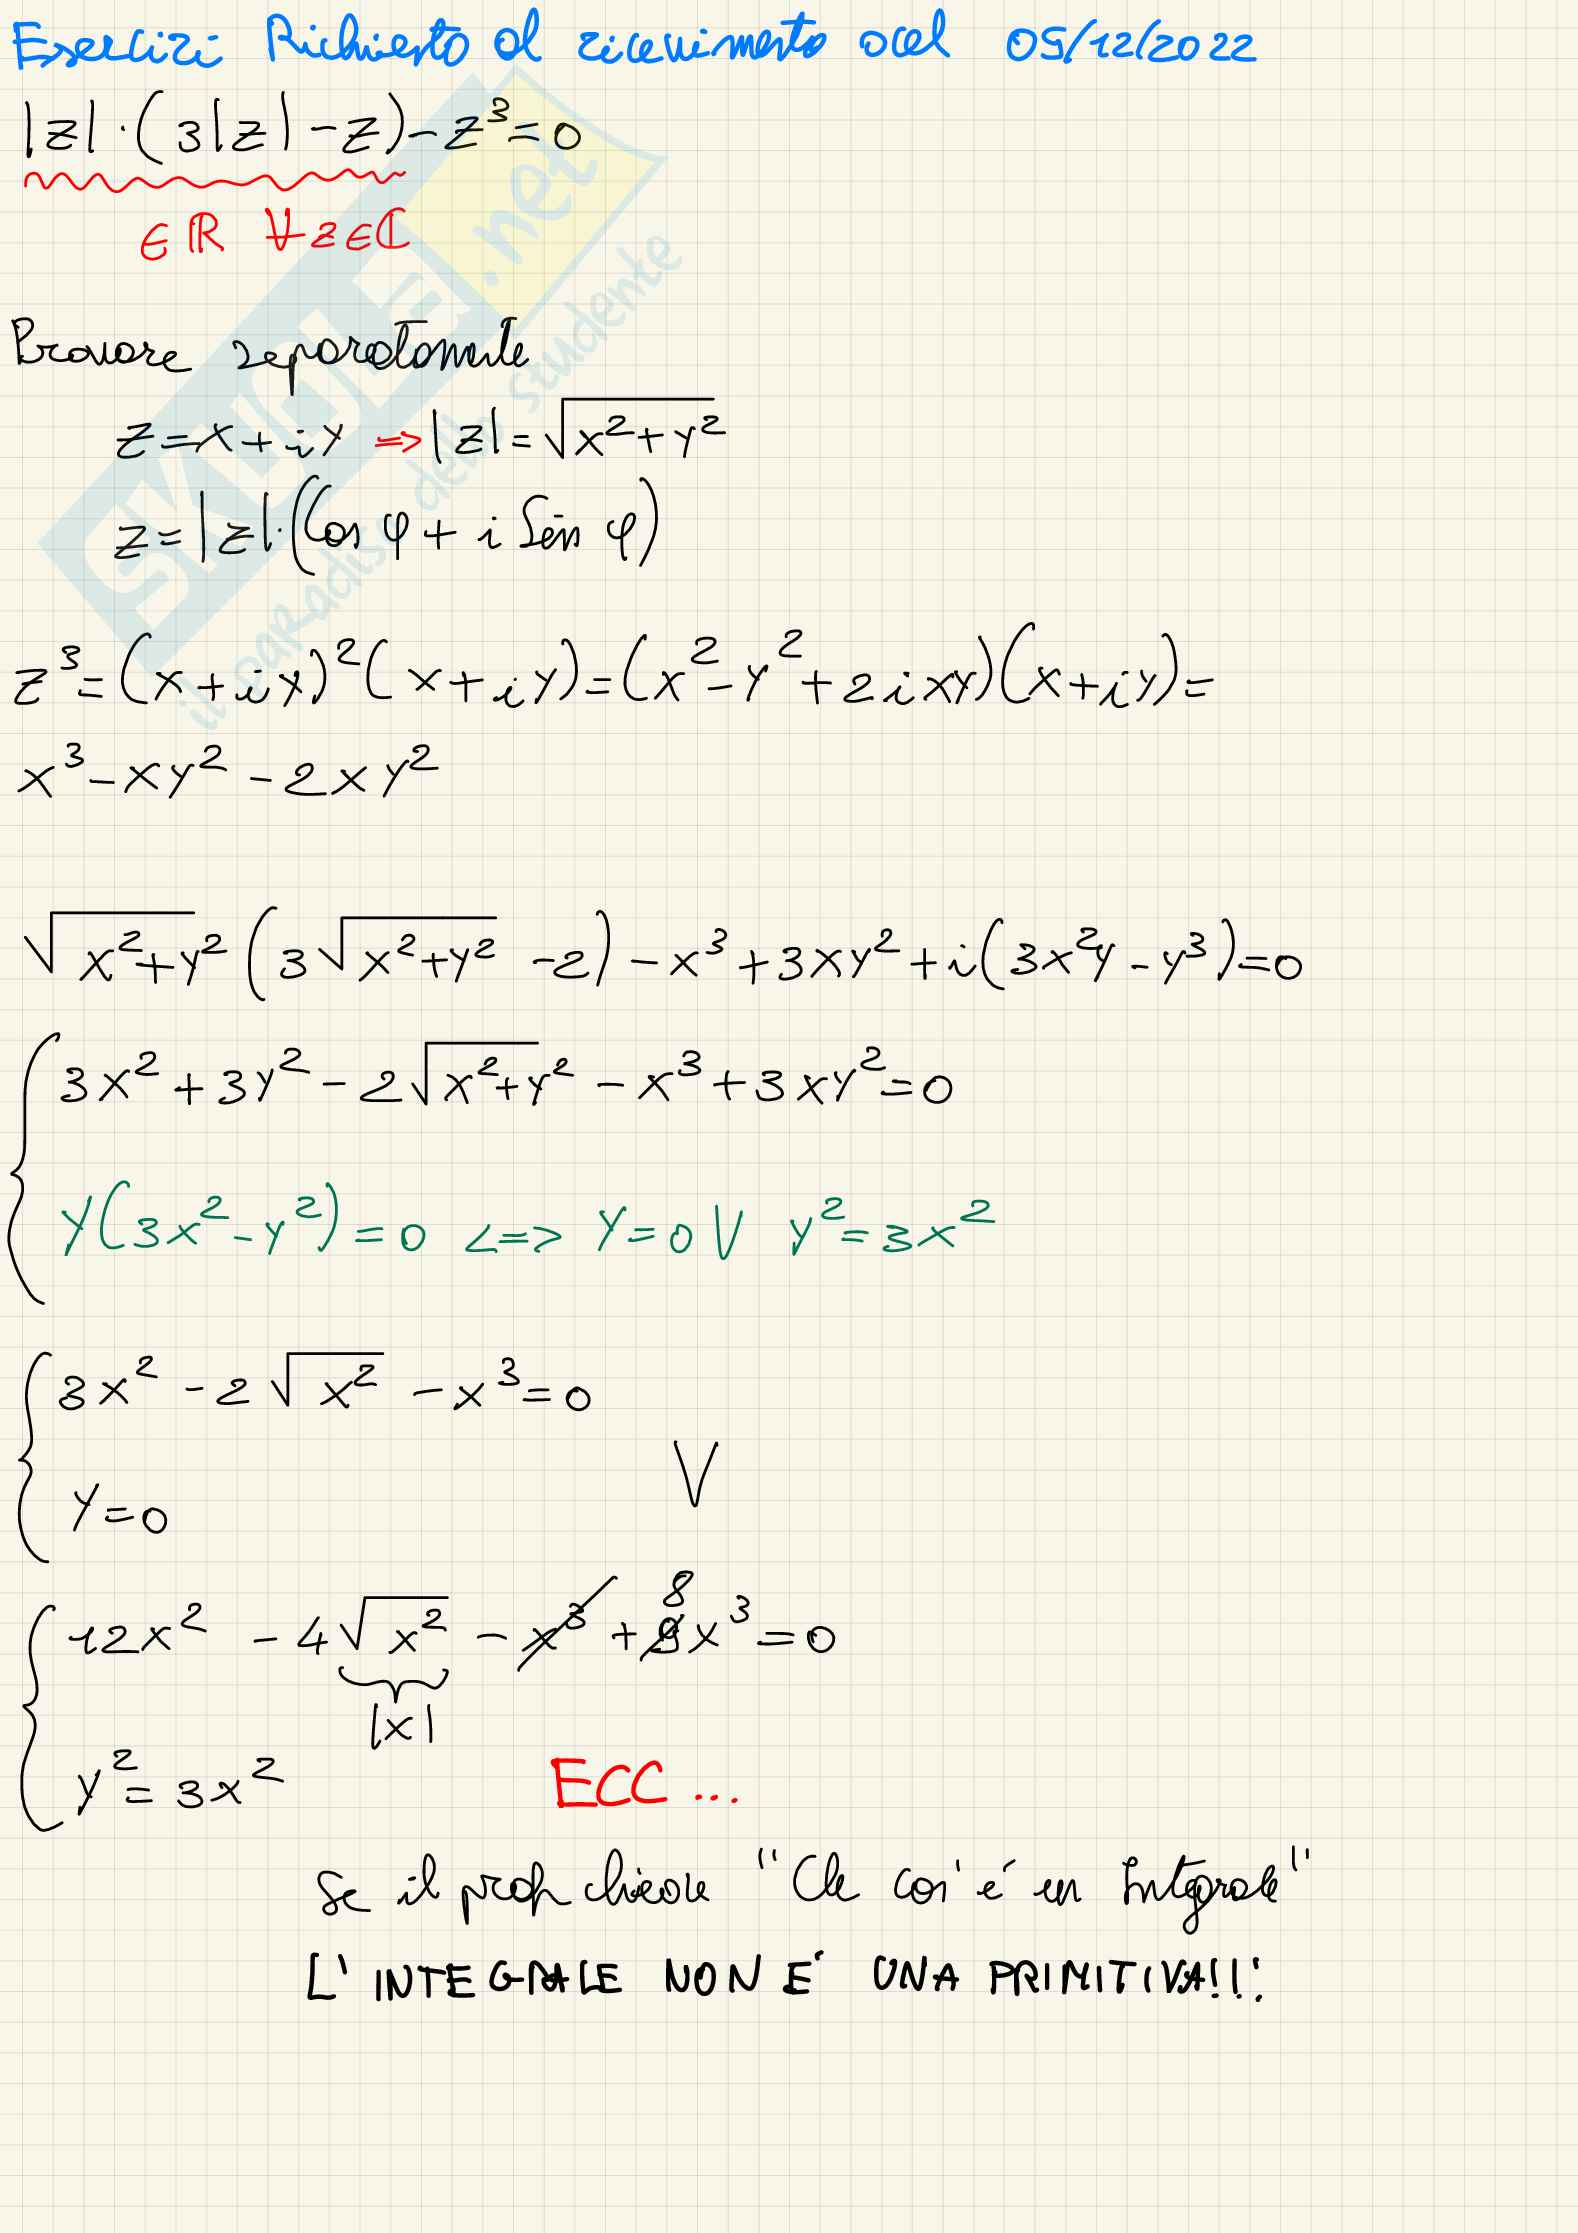 Esercizi Richiesto al ricevimento del 05/12/2022
|z|·(3|z|-z)-z³=0
∈ℝ ∀z∈ℂ
Provare separatamente
z=x+iy => |z|=√(x²+y²)
z=|z|·(Cos φ + i Sen φ)
z³=(x+iy)²(x+iy)=(x²-y²+2ixy)(x+iy)=
x³-xy²-2xy²
√(x²+y²) (3√(x²+y²) -2) -x³+3xy²+i(3x²y-y³)=0
{ 3x²+3y²-2√(x²+y²) -x³+3xy²=0
y(3x²-y²)=0 <=> y=0 V y²=3x²
{ 3x²-2√(x²) -x³=0
y=0
V
{ 12x² -4√(x²) -x³+9x³=0
8
|x|
y²=3x²
ECC...
Se il prof chiede "Che cos'è un Integrale"
L'INTEGRALE NON E' UNA PRIMITIVA!!!
SKUOLA.net
il paradiso dello studente